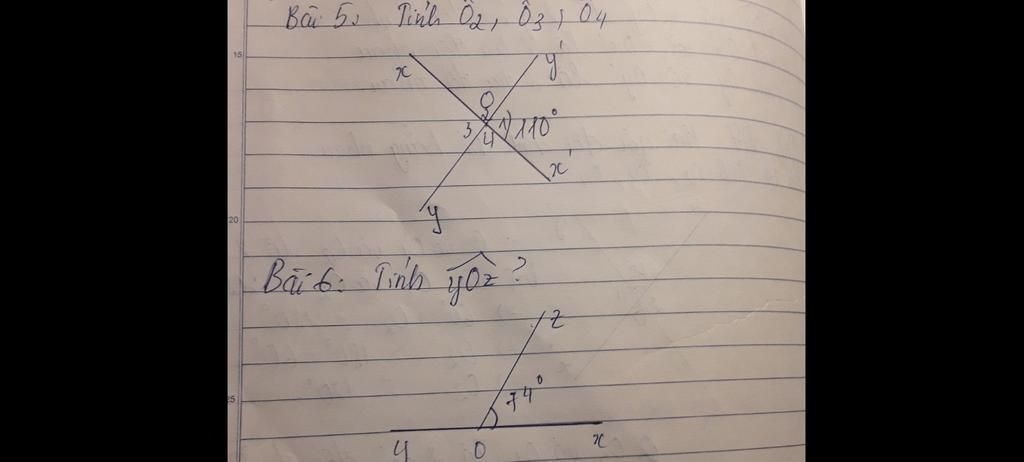 Bài 5: Tính Ô2, Ô3, Ô4
15
x
y'
O
2
3
1
110°
4
x'
y
20
Bài 6: Tính yOz ?
z
74°
25
y
O
x